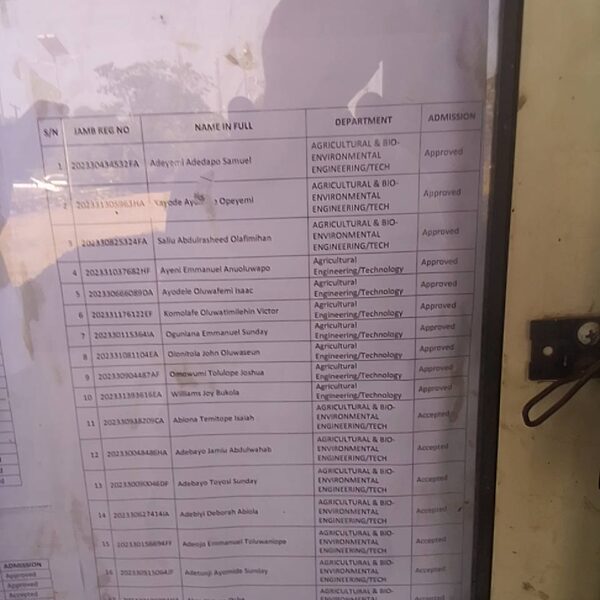 S/N JAMB REG NO NAME IN FULL DEPARTMENT ADMISSION
1 202330434532FA Adeyemi Adedapo Samuel AGRICULTURAL & BIO-
ENVIRONMENTAL
ENGINEERING/TECH Approved
2 Opeyemi AGRICULTURAL & BIO-
ENVIRONMENTAL
ENGINEERING/TECH Approved
3 202330825324FA Saliu Abdulrasheed Olafimihan AGRICULTURAL & BIO-
ENVIRONMENTAL
ENGINEERING/TECH Approved
4 202331037682HF Ayeni Emmanuel Anuoluwapo Agricultural
Engineering/Technology Approved
5 202330666089DA Ayodele Oluwafemi Isaac Agricultural
Engineering/Technology Approved
6 202331176122EF Komolafe Oluwatimilehin Victor Agricultural
Engineering/Technology Approved
7 202330115364IA Ogunlana Emmanuel Sunday Agricultural
Engineering/Technology Approved
8 202331081104EA Olonitola John Oluwaseun Agricultural
Engineering/Technology Approved
9 202330904487AF Omowumi Tolulope Joshua Agricultural
Engineering/Technology Approved
10 202331393616EA Williams Joy Bukola Agricultural
Engineering/Technology Approved
11 202330938209CA Abiona Temitope Isaiah AGRICULTURAL & BIO-
ENVIRONMENTAL
ENGINEERING/TECH Accepted
12 202330048486HA Adebayo Jamiu Abdulwahab AGRICULTURAL & BIO-
ENVIRONMENTAL
ENGINEERING/TECH Accepted
13 Adebayo Toyosi Sunday AGRICULTURAL & BIO-
ENVIRONMENTAL
ENGINEERING/TECH Accepted
14 202330627414IA Adebiyi Deborah Abiola AGRICULTURAL & BIO-
ENVIRONMENTAL
ENGINEERING/TECH Accepted
15 Adeoja Emmanuel Toluwanlope AGRICULTURAL & BIO-
ENVIRONMENTAL
ENGINEERING/TECH Accepted
16 Adetunji Ayomide Sunday AGRICULTURAL & BIO-
ENVIRONMENTAL
ENGINEERING/TECH Accepted
AGRICULTURAL & BIO-
ADMISSION
Approved
Approved
Accepted